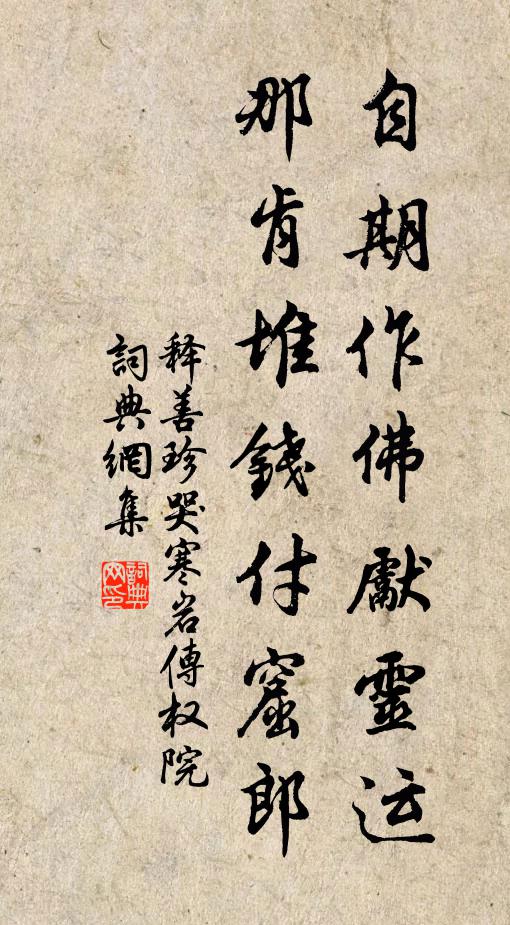 自期作佛獻靈运
那肯堆錢付窟郎
释善珍哭寒岩傅权院
詞典網集
詞典网印